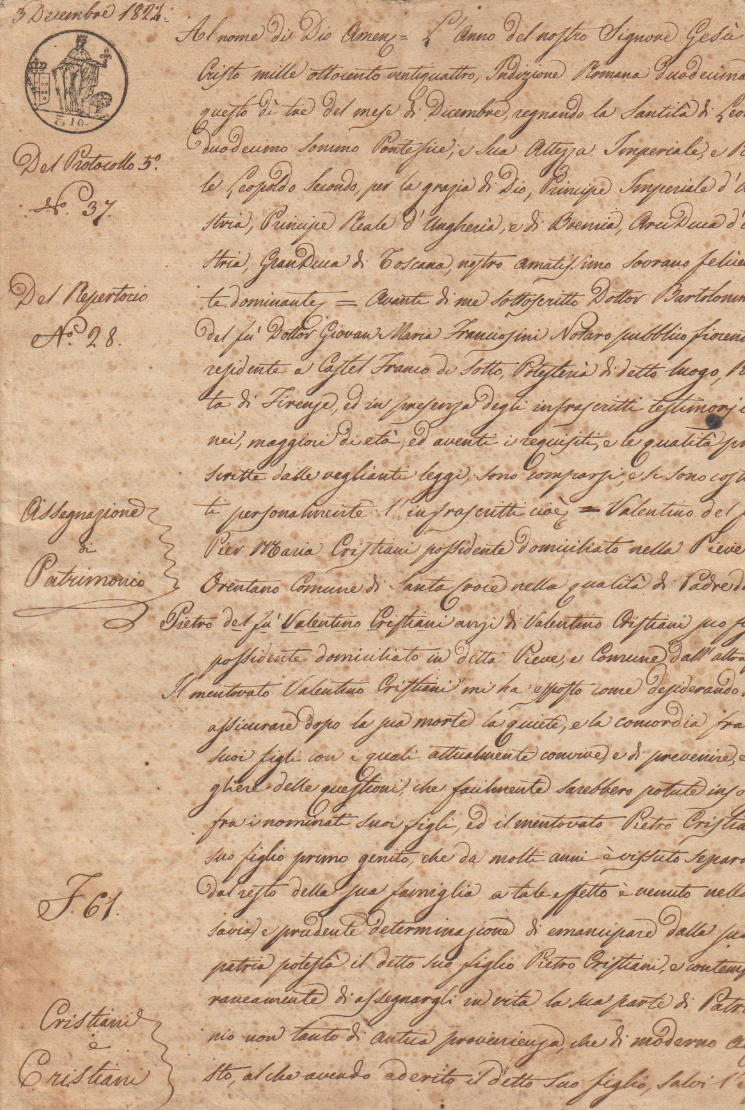 3 Decembre 1824.
Del Protocollo 5º.
Nº. 37.
Del Repertorio
Nº. 28.
Assegnazione
di
Patrimonio
F. 61.
Cristiani
e
Cristiani
Al nome di Dio Amen = L'Anno del nostro Signore Gesù
Cristo mille ottocento ventiquattro, Indizione Romana duodecima
questo dì tre del mese di Decembre, regnando la Santità di Leo
duodecimo Sommo Pontefice, e sua Altezza Imperiale, e R
le Leopoldo Secondo, per la grazia di Dio, Principe Imperiale d'A
stria, Principe Reale d'Ungheria, e di Boemia, ArciDuca d'A
stria, GranDuca di Toscana, nostro amatissimo Sovrano felice
te dominante = Avante di me sottoscritto Dottor Bartolomm
del fù Dottor Giovan Maria Franciosini Notaro pubblico fioren
residente a Castel Franco di Sotto, Potesteria di detto luogo, R
ta di Firenze, ed in presenza degli infrascritti testimonj i
nei, maggiori di età, ed aventi i requisiti, e le qualità pre
scritte dalle veglianti leggi, sono comparsi, e si sono costi
ti personalmente l'infrascritti cioè = Valentino del f
Pier Maria Cristiani possidente domiciliato nella Pieve
Orentano Comune di Santa Croce nella qualità di Padre da
Pietro del fu Valentino Cristiani anzi di Valentino Cristiani suo fi
possidente domiciliato in detta Pieve, e Comune, dall'altra
Il mentovato Valentino Cristiani mi ha esposto come desiderando
assicurare dopo la sua morte la quiete, e la concordia fra
suoi figli con i quali attualmente convive, e di prevenire, e
gliere delle questioni, che facilmente sarebbero potute inso
fra i nominati suoi figli, ed il mentovato Pietro Cristia
suo figlio primo genito, che da molti anni è vissuto separa
dal resto della sua famiglia a tale effetto è venuto nella
savia, e prudente determinazione di emancipare dalla sua
patria potestà il detto suo figlio Pietro Cristiani, e contemp
raneamente di assegnargli in vita la sua parte di Patri
nio non tanto di antica provenienza, che di moderno a
sto, al che avendo aderito il detto suo figlio, salvi l'